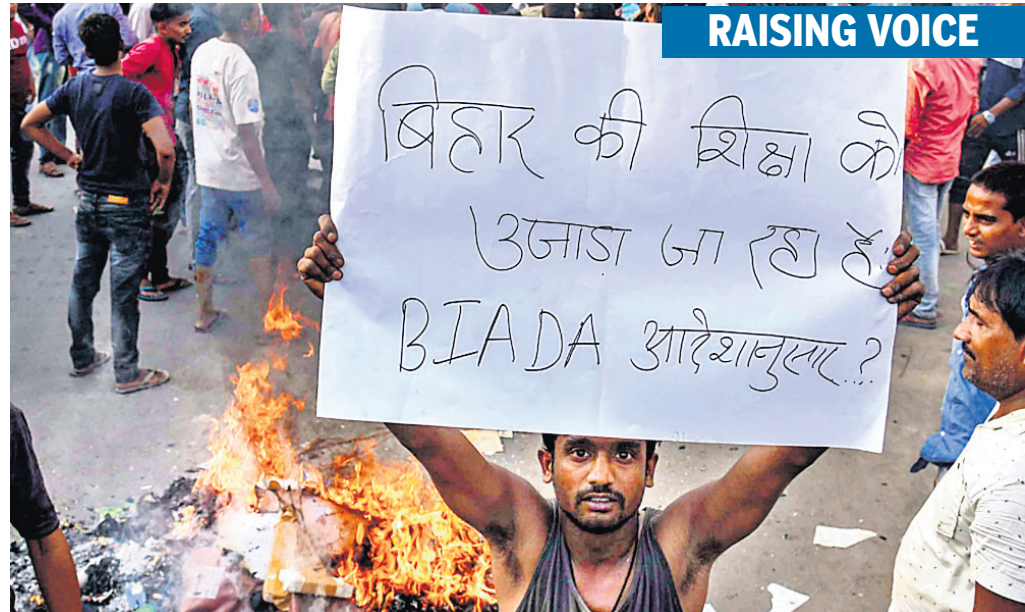 RAISING VOICE
बिहार की शिक्षा को
उजाड़ा जा रहा है
BIADA आदेशानुसार..?